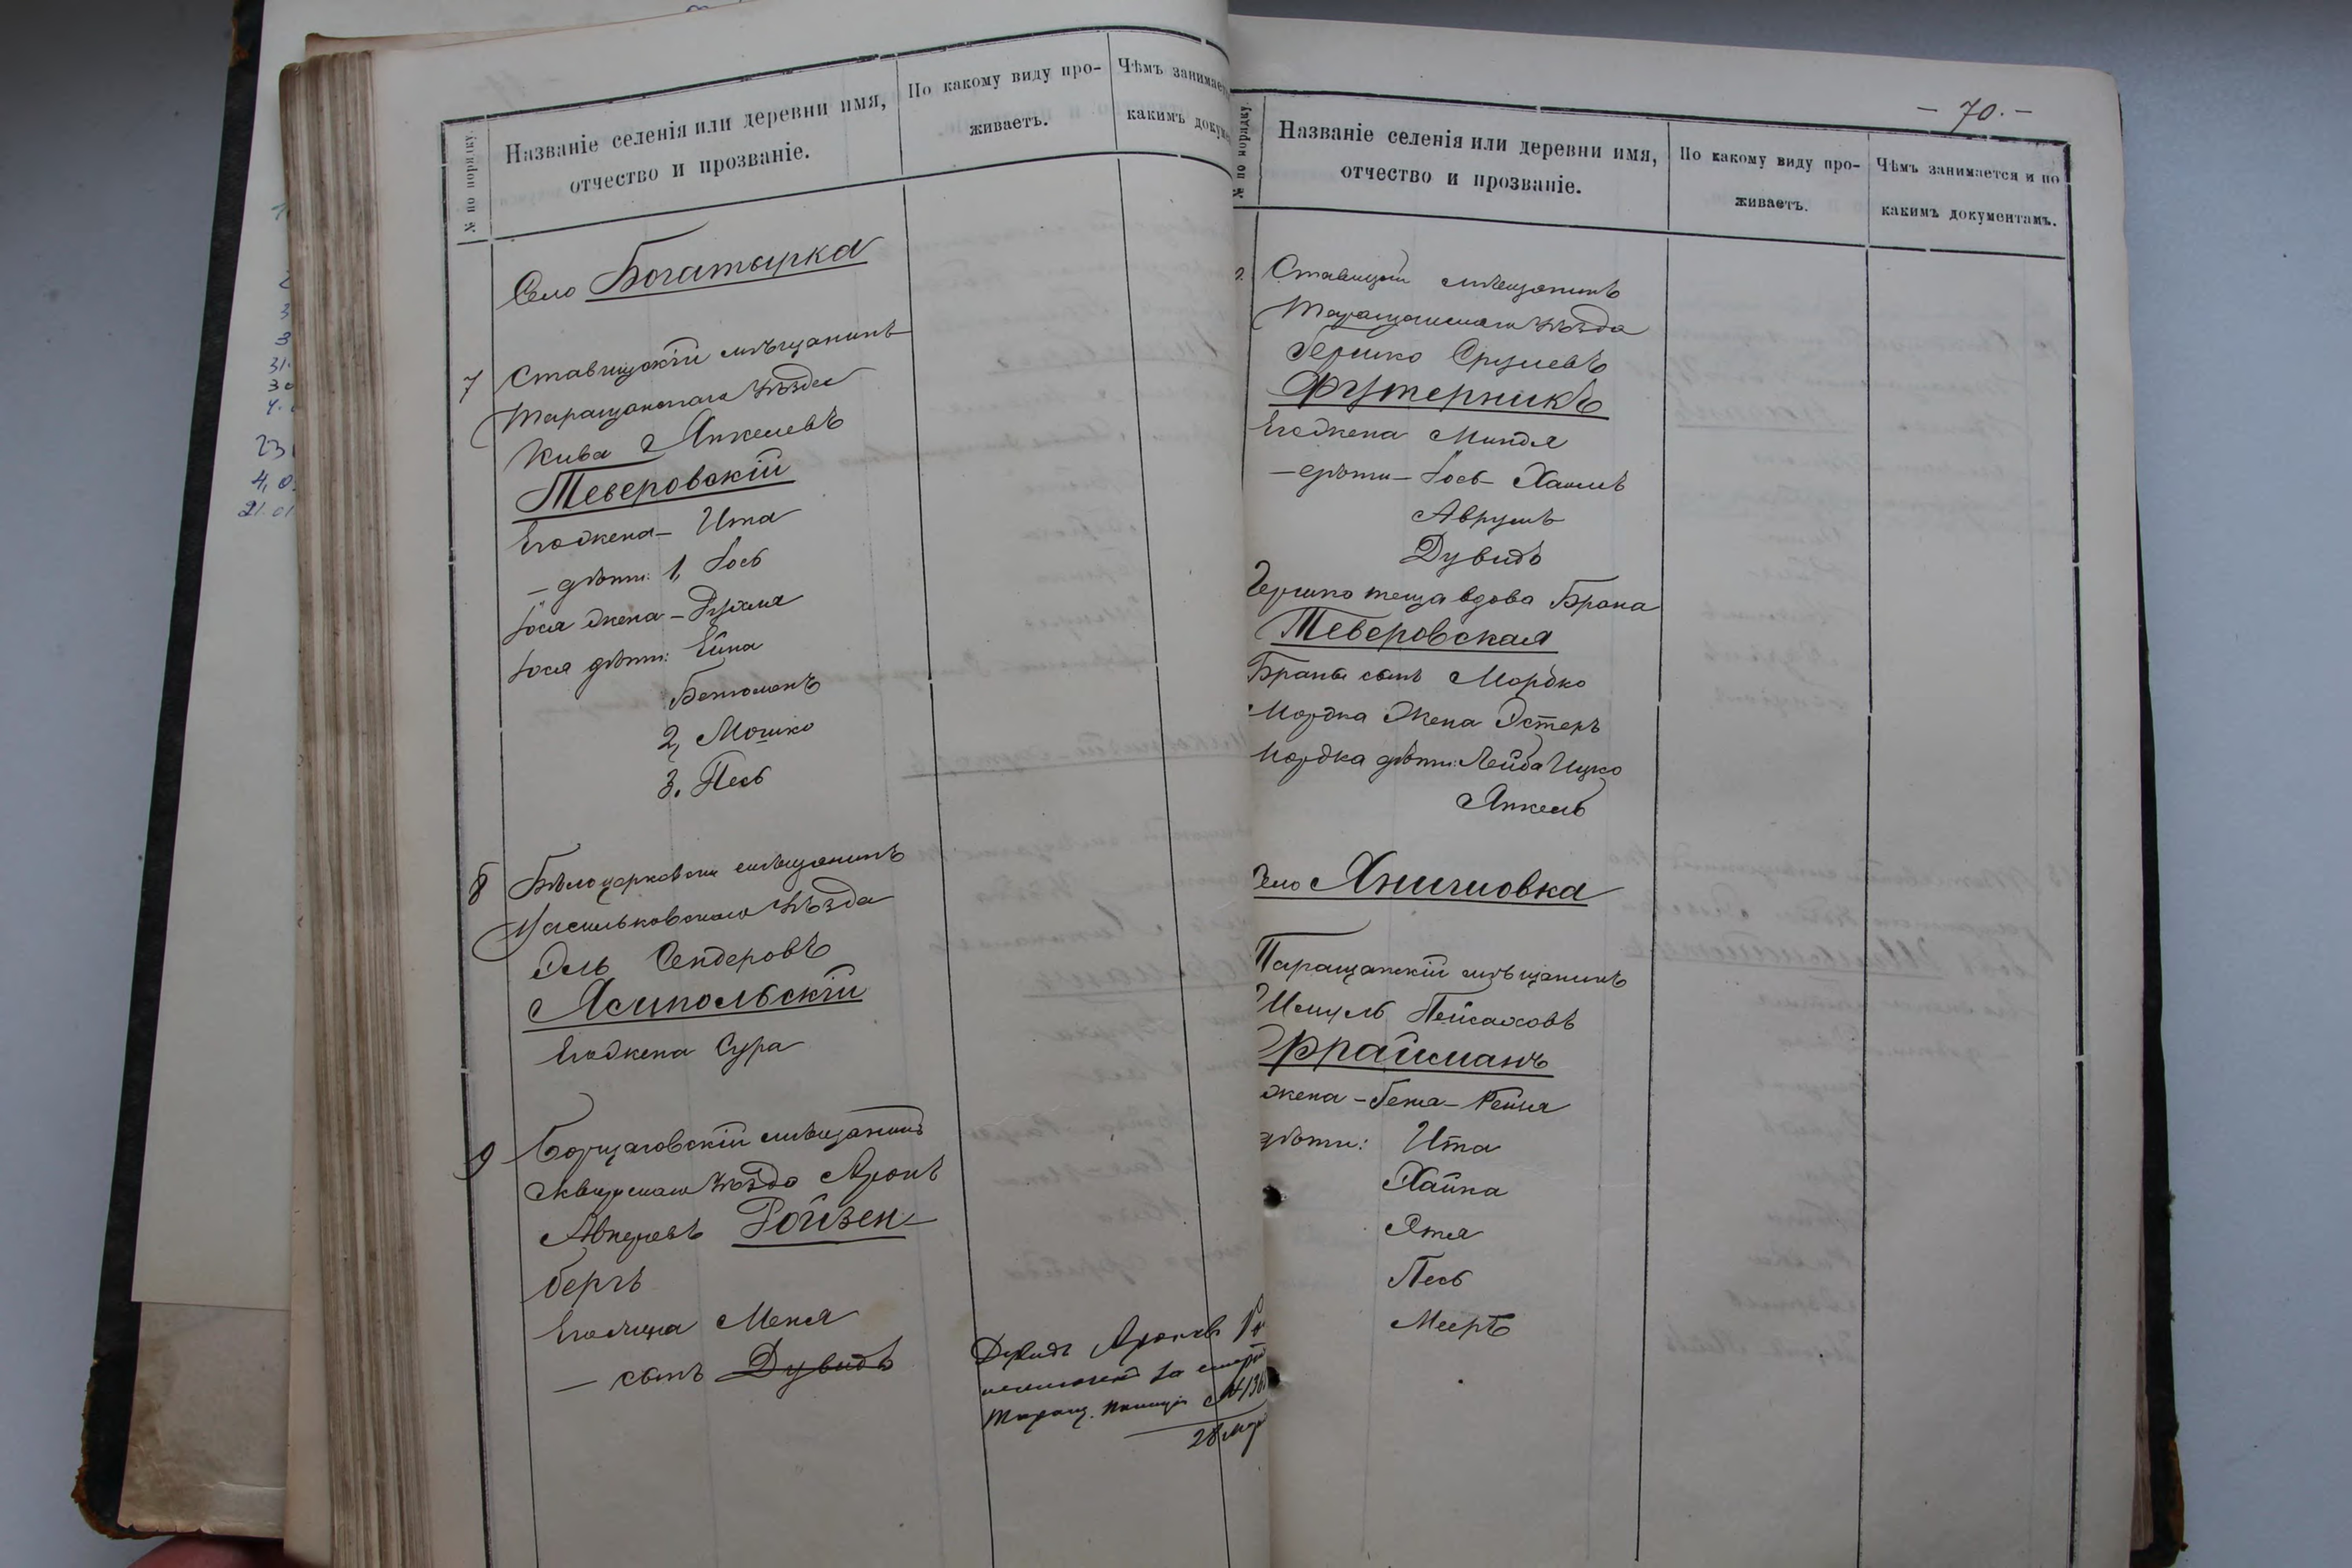 № по порядку.
Названіе селенія или деревни имя,
отчество и прозваніе.
По какому виду про-
живаетъ.
Чѣмъ занимае
какимъ докум
Село Богатырка
7
Ставищскій мѣщанинъ
Таращанскаго уѣзда
Кива Янкелевъ
Теверовскій
Его жена - Ита
- дѣти: 1, Іось
Іося жена - Рухля
Іося дѣти: Ейна
Бенюменъ
2, Мошко
3. Песь
8
Бѣлоцерковскій мѣщанинъ
Васильковскаго уѣзда
Эль Сендеровъ
Ясипольскій
Его жена Сура
9
Борщаговскій мѣщанинъ
Сквирскаго уѣзда Аронъ
Ройзен-
бергъ
Его жена Меня
- сынъ Дувидъ
Дувидъ Ароновъ
исключенъ за смерт
Таращ. полиціи №
28 мар
- 70. -
№ по порядку.
Названіе селенія или деревни имя,
отчество и прозваніе.
По какому виду про-
живаетъ.
Чѣмъ занимается и по
какимъ документамъ.
Ставищскій мѣщанинъ
Таращанскаго уѣзда
Гершко Срулевъ
Футерникъ
Его жена Миндя
- дѣти - Іось Хаимъ
Аврумъ
Дувидъ
Гершко теща вдова Брана
Теверовская
Браны сынъ Мордко
Мордка жена Эстеръ
Мордка дѣти: Лейба Ицко
Янкель
Село Янишовка
Таращанскій мѣщанинъ
Шмуль Пейсаховъ
Фрайманъ
жена - Бейла - Рейзя
дѣти: Ита
Хайка
Этя
Песь
Мееръ